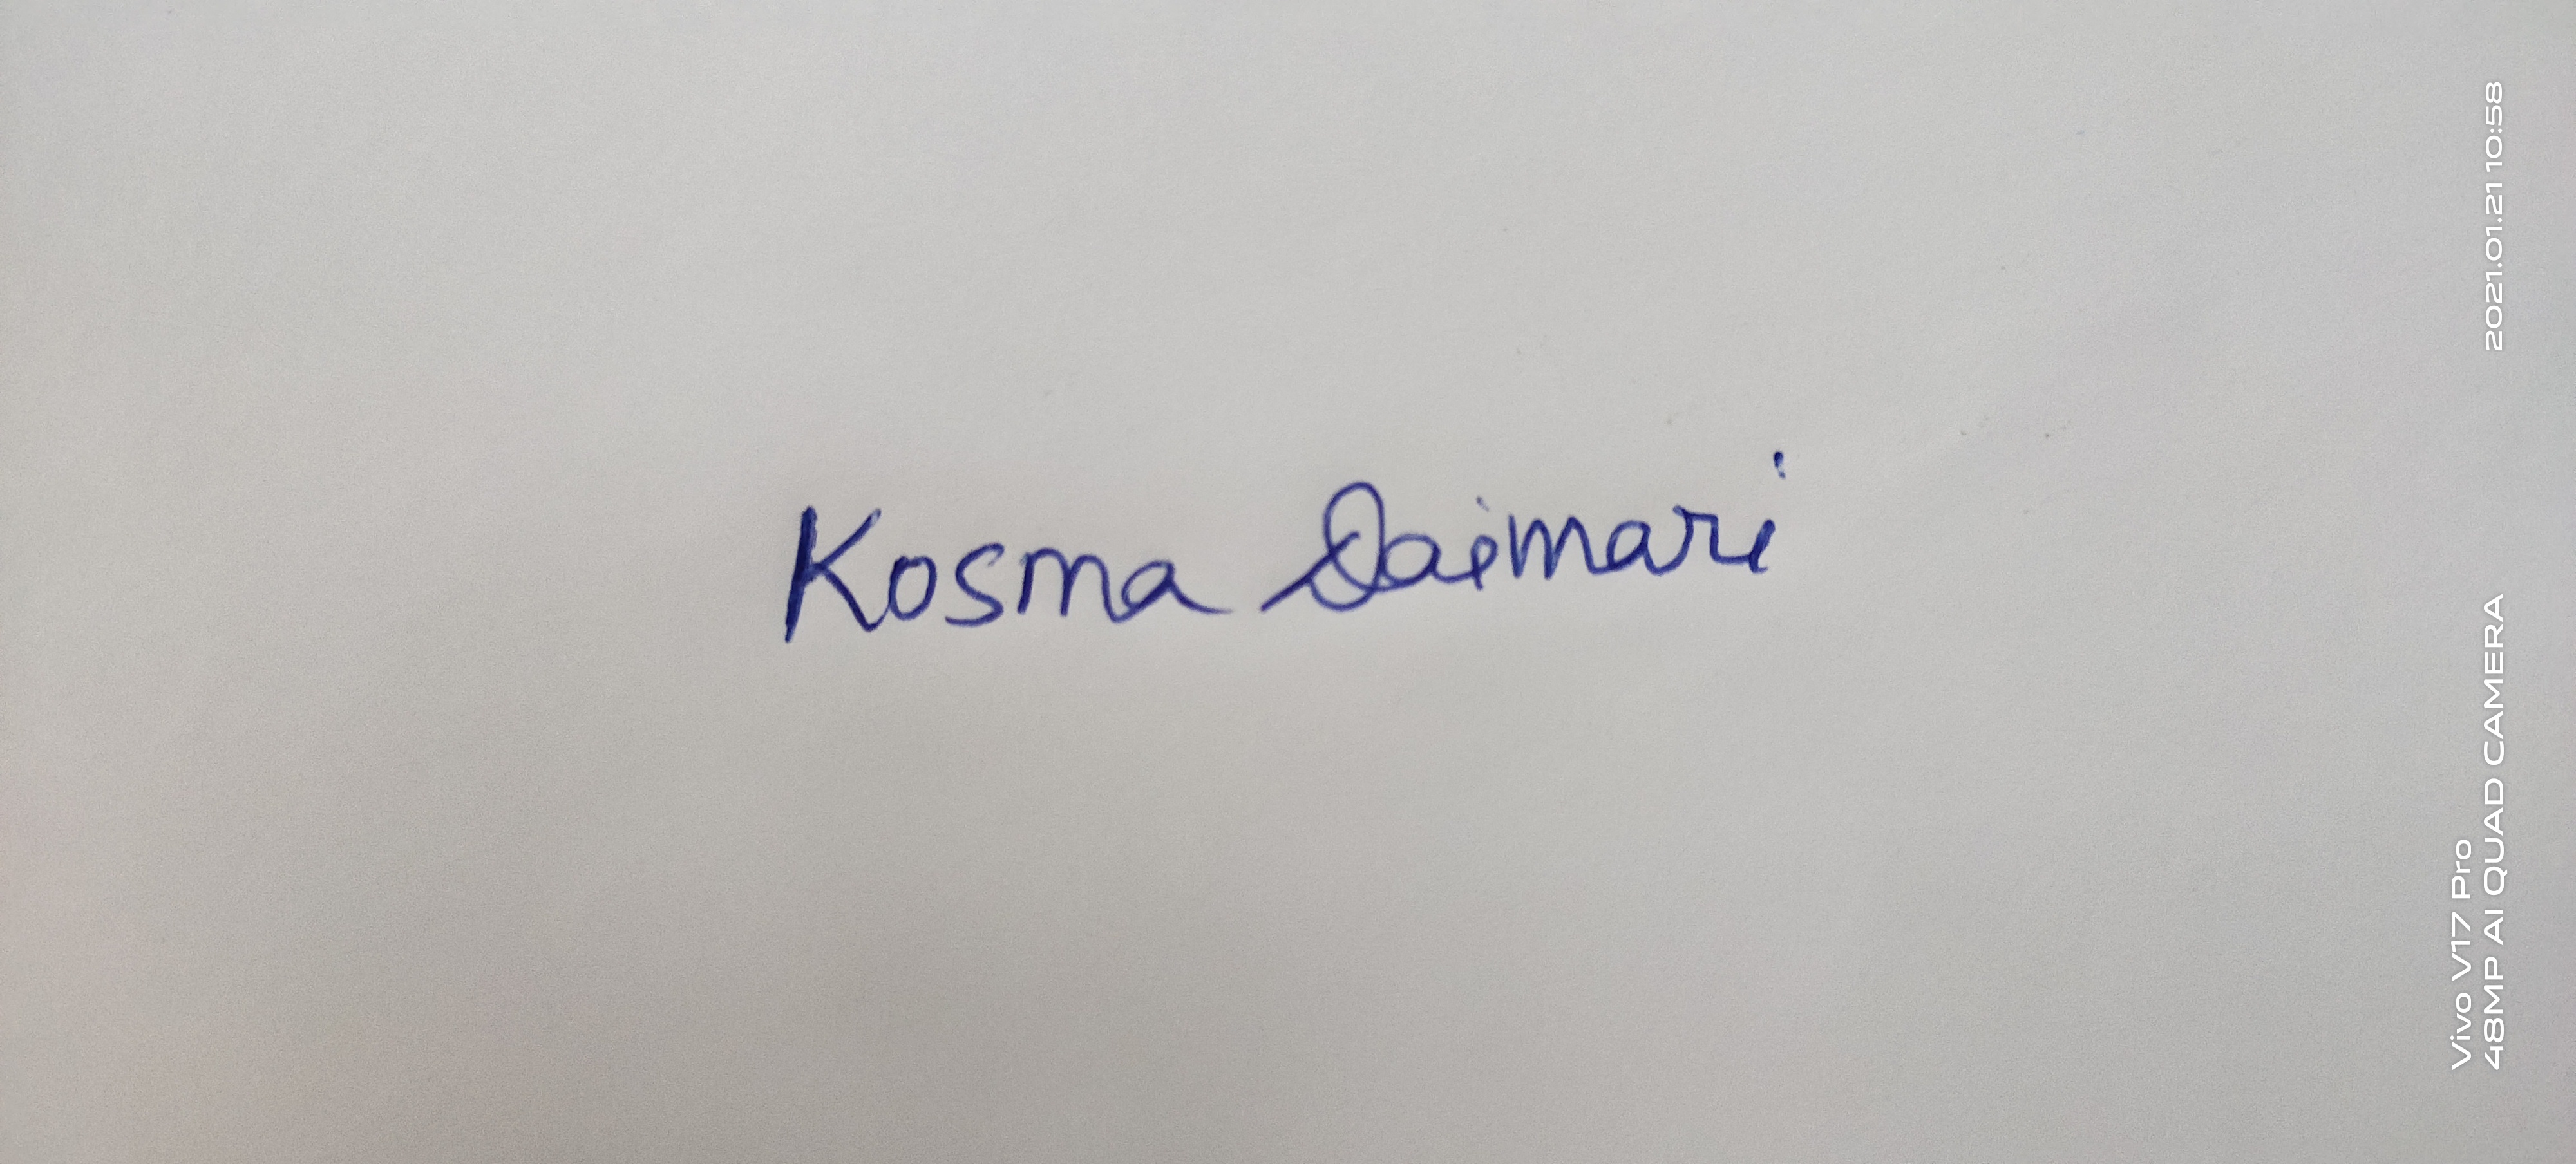 Kosma Daimari
Vivo V17 Pro
48MP AI QUAD CAMERA
2021.01.21 10:58